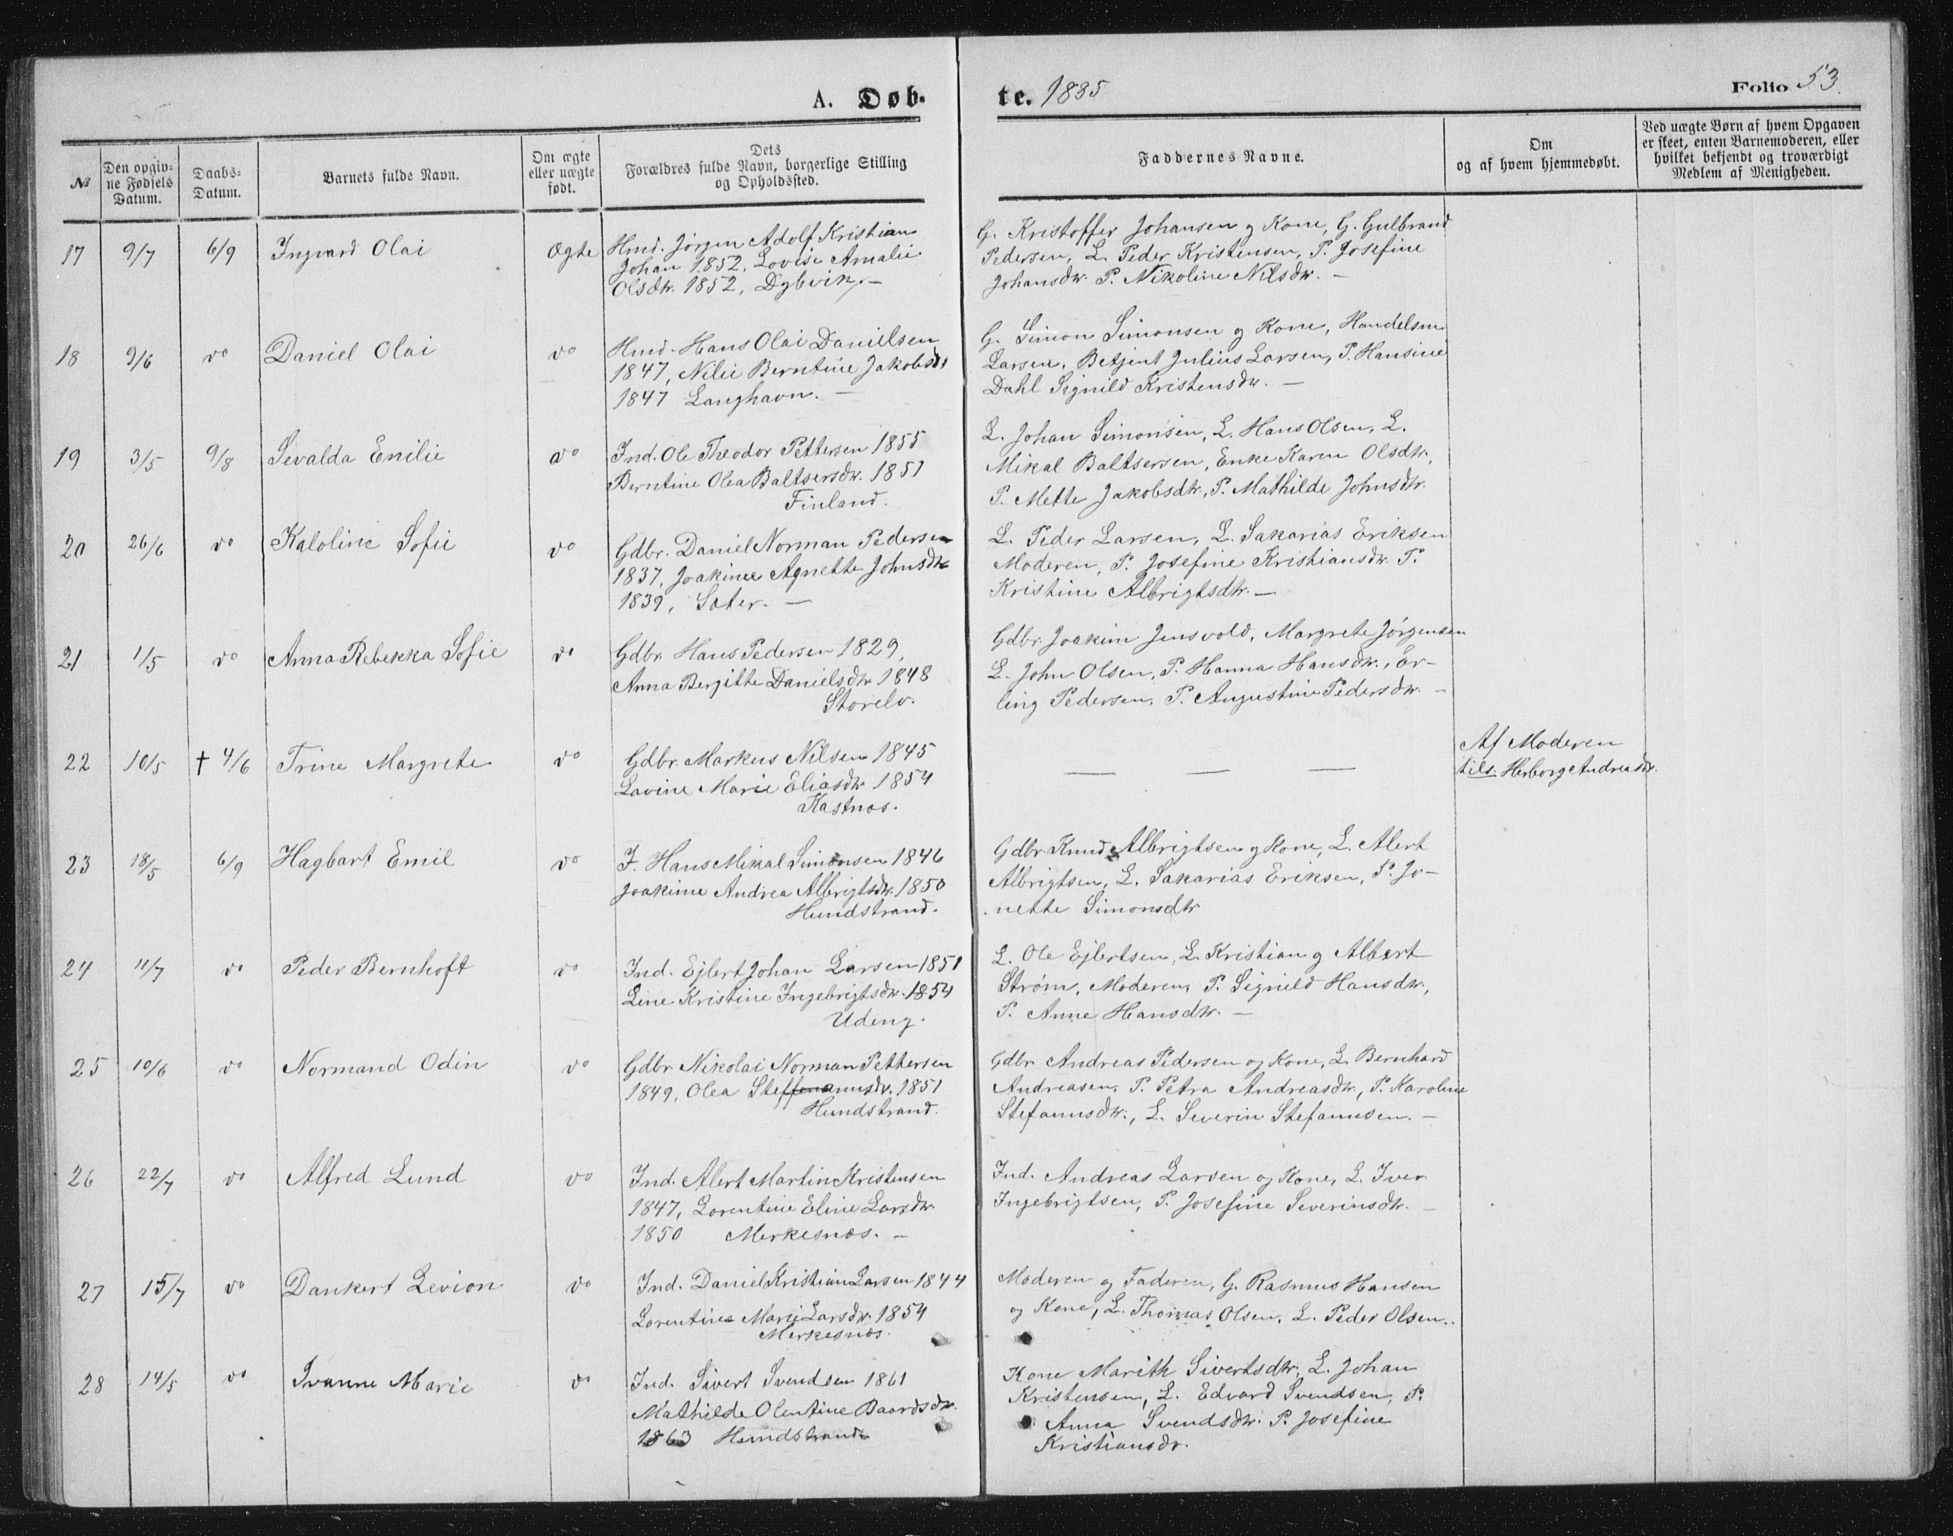 A. Døb- te. 1885 Folio 53.
№
Den opgiv-
ne Fødsels
Datum.
Daabs-
Datum.
Barnets fulde Navn.
Om ægte
eller uægte
født.
Dets
Forældres fulde Navn, borgerlige Stilling
og Opholdssted.
Faddernes Navne.
Om
og af hvem hjemmedøbt.
Ved uægte Børn af hvem Opgaven
er skeet, enten Barnemoderen, eller
hvilket bekjendt og troværdigt
Medlem af Menigheden.
17 9/7 6/9 Ingvard Olai Ægte Hmd. Jørgen Adolf Kristian
Johan 1852, Lovise Amalie
Olsdtr. 1852, Dybvik, —
G. Kristoffer Johansen og Kone, G. Gulbrand
Pedersen, L. Peder Kristensen, P. Josefine
Johansdtr. P. Nikoline Nilsdtr. —
18 9/6 do Daniel Olai do Hmd. Hans Olai Danielsen
1847, Nilie Berntine Jakobsdtr
1847 Langhavn. —
G. Simon Simonsen og Kone, Handelsm.
Larsen, Betjent Julius Larsen, P. Hansine
Dahl Signild Kristensdtr. —
19 3/5 9/8 Sevalda Emilie do Ind. Ole Theodor Pettersen 1855
Berntine Olea Baltsersdtr. 1851
Finland.
L. Johan Simonsen, L. Hans Olsen, L.
Mikal Baltsersen, Enke Karen Olsdtr,
P. Mette Jakobsdtr, P. Mathilde Johnsdtr.
20 26/6 do Kaloline Sofie do Gdbr. Daniel Norman Pedersen
1837, Joakinee Agnette Johnsdtr
1839, Sæter. —
L. Peder Larsen, L. Sakarias Eriksen
Moderen, P. Josefine Kristiansdtr. P.
Kristine Albrigtsdtr. —
21 1/5 do Anna Rebekka Sofie do Gdbr. Hans Pedersen 1829,
Anna Bergitte Danielsdtr 1848
Storelv.
Gdbr. Joakim Jensvold, Margrete Jørgensen
L. John Olsen, P. Hanna Hansdtr., Er-
ling Pedersen, P. Augustine Pedersdtr. —
22 10/5 † 4/6 Trine Margrete do Gdbr. Markus Nilsen 1845
Lavine Marie Eliasdtr. 1854
Kastnes.
— — —
Af Moderen
tils. Herborg Andreasdtr.
23 18/5 6/9 Hagbart Emil do I. Hans Mikal Simonsen 1846
Joakime Andrea Albrigtsdtr. 1850
Hundstrand.
Gdbr Knud Albrigtsen og Kone, L. Alert
Albrigtsen, L. Sakarias Eriksen, P. Jo-
nette Simonsdtr
24 11/7 do Peder Bernhoft do Ind. Ejlert Johan Larsen 1851
Line Kristine Ingebrigtsdtr. 1854
Udeng.
L. Ole Ejlertsen, L. Kristian og Albert
Strøm, Moderen, P. Signild Hansdtr,
P. Anne Hansdtr. —
25 10/6 do Normand Odin do Gdbr. Nikolai Norman Pettersen
1849, Olea Steffenamsdtr. 1851
Hundstrand.
Gdbr. Andreas Pedersen og Kone, L. Bernhard
Andreasen, P. Petra Andreasdtr., P. Karoline
Stefanusdtr., L. Severin Stefanusen. —
26 22/7 do Alfred Lund do Ind. Alert Martin Kristensen
1847, Lorentine Eline Larsdtr.
1850 Merkesnæs. —
Ind. Andreas Larsen og Kone, L. Iver
Ingebrigtsen, P. Josefine Severinsdtr. —
27 15/7 do Dankert Levion do Ind. Daniel Kristian Larsen 1844
Lorentine Marie Larsdtr. 1854
Merkesnæs.
Moderen og Faderen, G. Rasmus Hansen
og Kone, L. Thomas Olsen, L. Peder Olsen.
28 14/5 do Ivanne Marie do Ind. Sivert Svendsen 1861
Mathilde Olentine Baardsdtr.
1863 Hundstrand
Kone Marith Sivertsdtr, L. Johan
Kristensen, L. Edvard Svendsen, P.
Anna Svendsdtr. P. Josefine
Kristiansdtr.